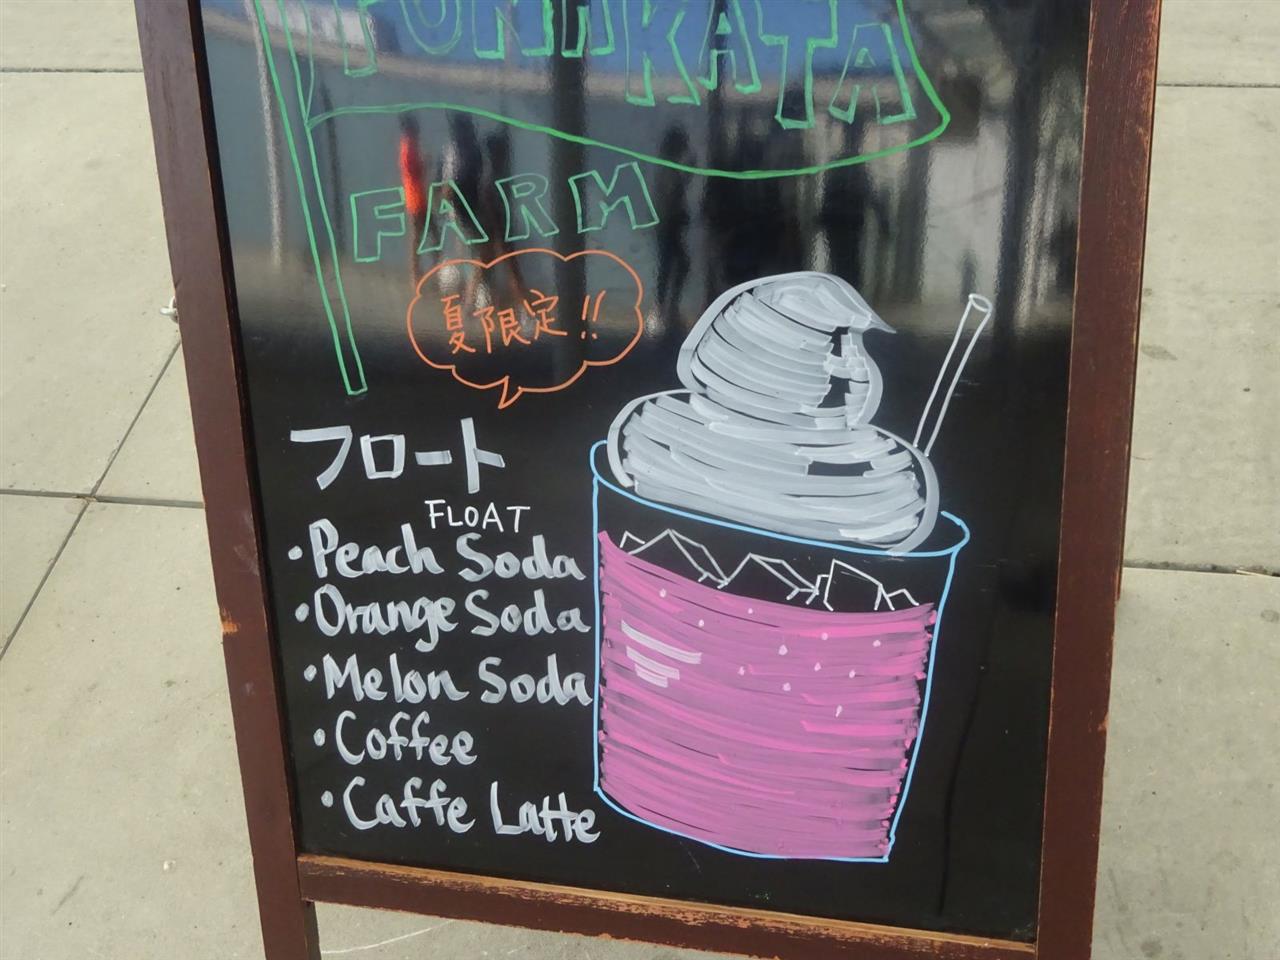 FUNAKATA
FARM
夏限定!!
フロート
FLOAT
・Peach Soda
・Orange Soda
・Melon Soda
・Coffee
・Caffe Latte